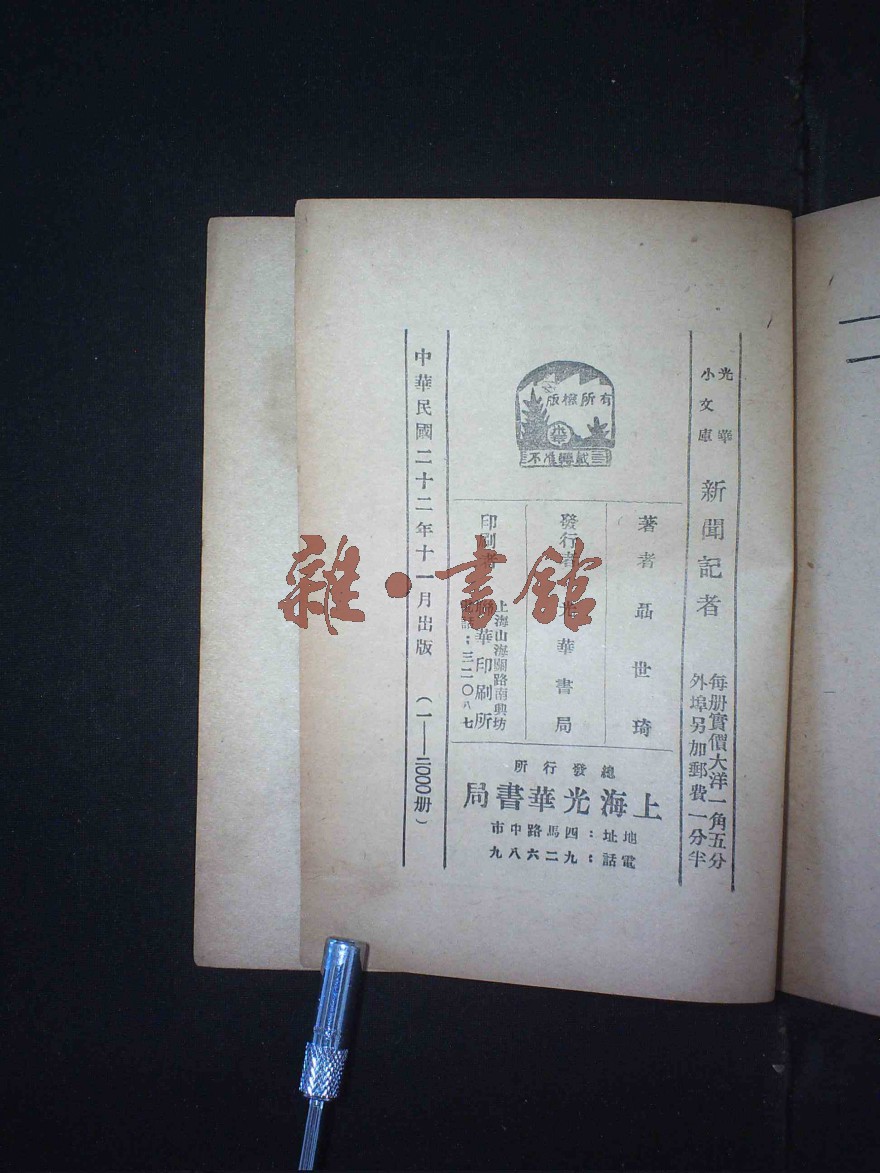 光華
小文庫
新聞記者
每册實價大洋一角五分
外埠另加郵費一分半
有所權版
著者 聶世琦
發行者 光華書局
印刷者 華印刷所
上海山海關路南興坊
電話：三二一〇八七
總發行所
上海光華書局
地址：四馬路中市
電話：九二六八九
中華民國二十二年十一月出版 （一——二000册）
雜·書館